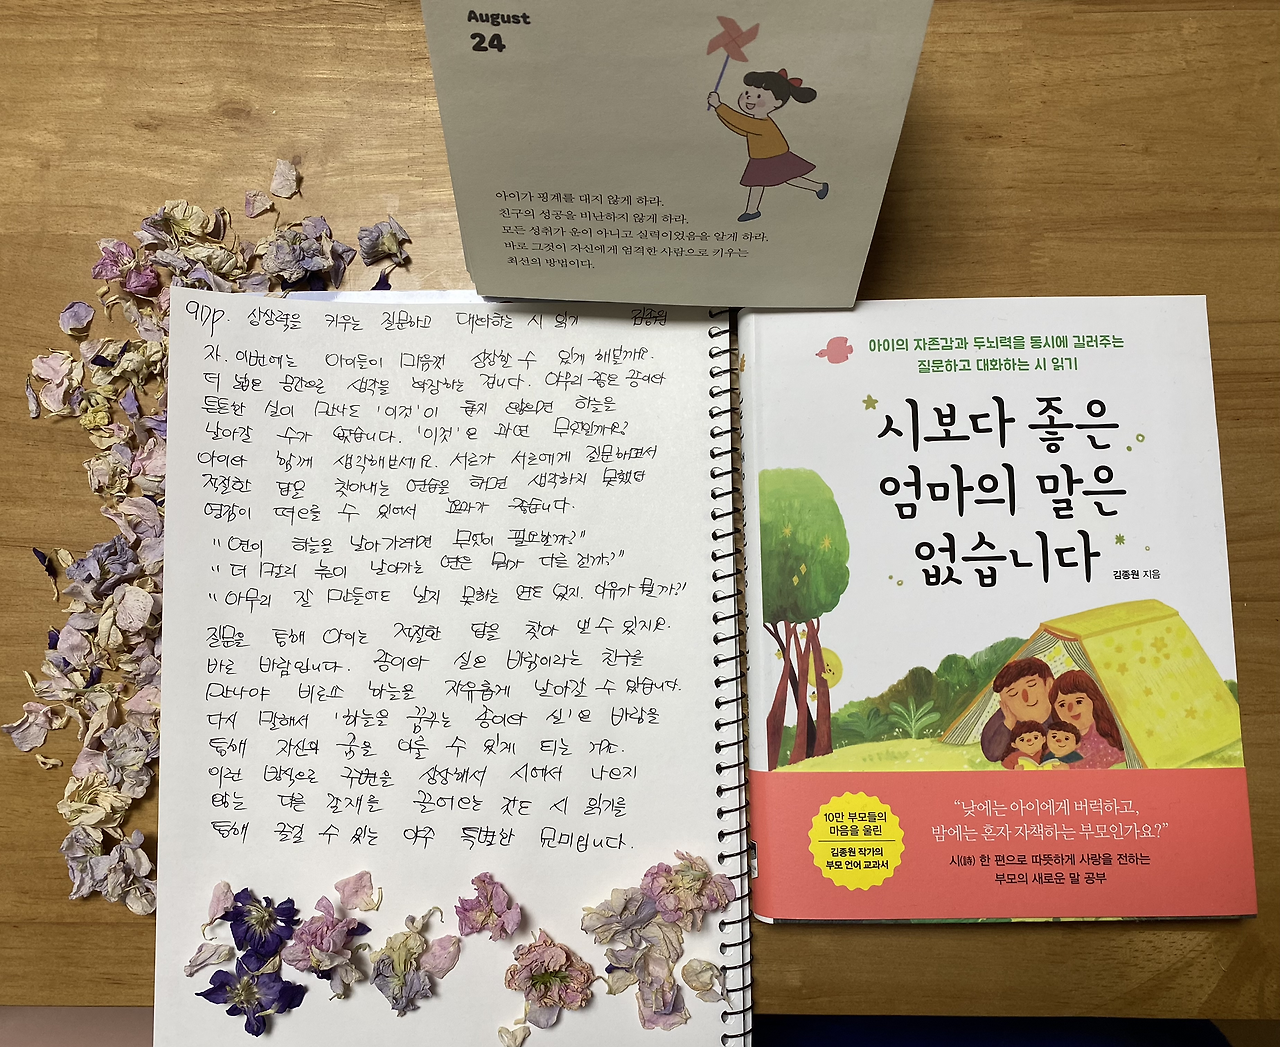 August
24
아이가 핑계를 대지 않게 하라.
친구의 성공을 비난하지 않게 하라.
모든 성취가 운이 아니고 실력이었음을 알게 하라.
바로 그것이 자신에게 엄격한 사람으로 키우는
최선의 방법이다.
97p. 상상력을 키우는 질문하고 대화하는 시 읽기 김종원
자. 이번에는 아이들이 마음껏 상상할 수 있게 해볼까요.
더 넓은 공간으로 생각을 확장하는 겁니다. 아무리 좋은 종이와
튼튼한 실이 만나도 '이것'이 돕지 않으면 하늘을
날아갈 수가 없습니다. '이것'은 과연 무엇일까요?
아이와 함께 생각해보세요. 서로가 서로에게 질문하면서
적절한 답을 찾아내는 연습을 하면 생각하지 못했던
영감이 떠오를 수 있어서 효과가 좋습니다.
"연이 하늘을 날아가려면 무엇이 필요할까?"
"더 멀리 높이 날아가는 연은 뭐가 다를까?"
"아무리 잘 만들어도 날지 못하는 연도 있지. 이유가 뭘까?"
질문을 통해 아이는 적절한 답을 찾아 낼 수 있지요.
바로 바람입니다. 종이와 실은 바람이라는 친구를
만나야 비로소 하늘을 자유롭게 날아갈 수 있습니다.
다시 말해서 '하늘을 꿈꾸는 종이와 실'은 바람을
통해 자신의 꿈을 이룰 수 있게 되는 거죠.
이런 방식으로 주변을 상상해서 시에서 나오지
않는 다른 존재를 끌어오는 것도 시 읽기를
통해 즐길 수 있는 아주 특별한 묘미입니다.
아이의 자존감과 두뇌력을 동시에 길러주는
질문하고 대화하는 시 읽기
시보다 좋은
엄마의 말은
없습니다
김종원 지음
10만 부모들의
마음을 울린
김종원 작가의
부모 언어 교과서
"낮에는 아이에게 버럭하고,
밤에는 혼자 자책하는 부모인가요?"
시(詩) 한 편으로 따뜻하게 사랑을 전하는
부모의 새로운 말 공부